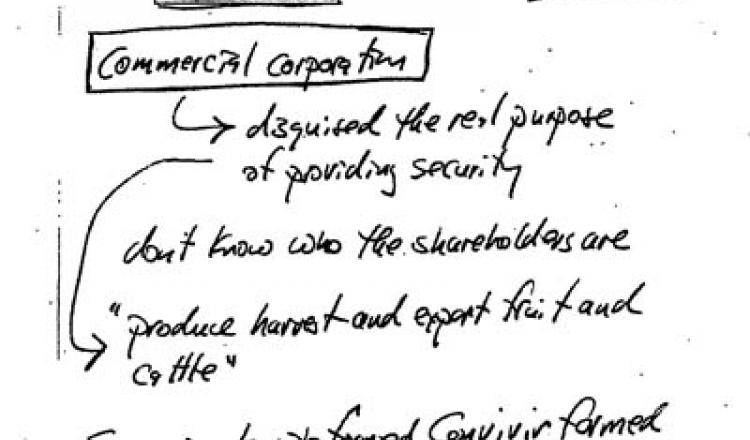 Commercial Corporation
disguised the real purpose
of providing security
don't know who the shareholders are
"produce harvest and export fruit and
cattle"
formed Convivir formed